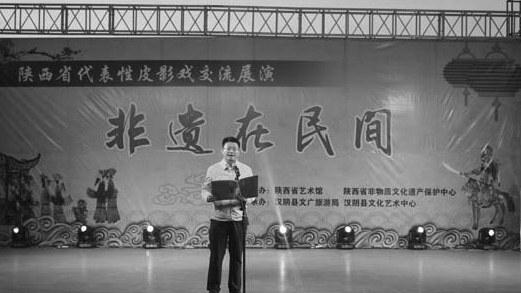 陕西省代表性皮影戏交流展演
非遗在民间
办：陕西省艺术馆 陕西省非物质文化遗产保护中心
办：汉阴县文广旅游局 汉阴县文化艺术中心